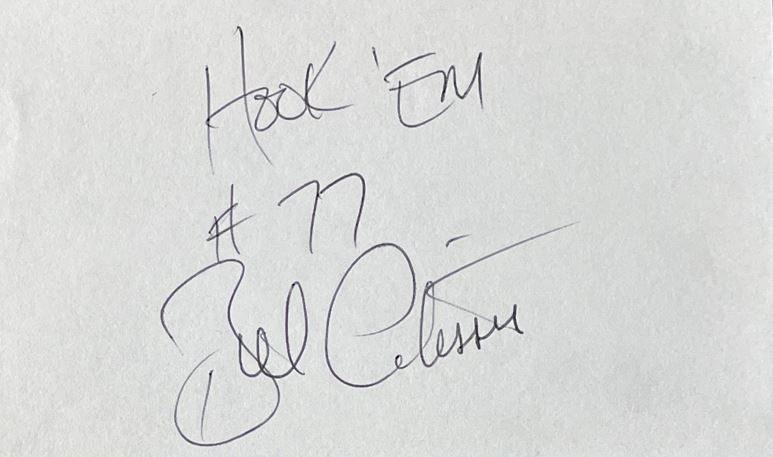 Hook 'Em
# 77
Bill Atessis